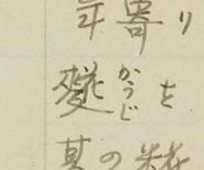 年寄り
かうじ
を
其の糀